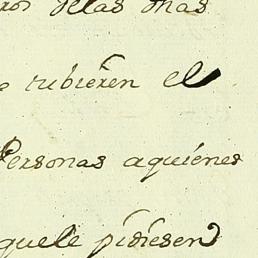 ros delas mas
e tubieren el
Personas aquienes
quele pidiesen